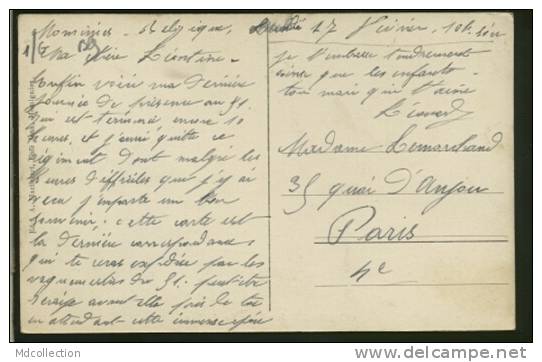 Momignies - Belgique, Lundi 17 Février, 10h. soir
Ma chère Léontine -
Enfin voici ma dernière
journée de présence au 91.
qui est terminée encore 10
heures, et j'aurai quitté ce
régiment dont malgré les
heures difficiles que j'y ai
vécu j'emporte un bon
souvenir; cette carte est
la dernière correspondance
qui te sera expédiée par les
du 91. peut-être
serai-je avant elle près de toi
en attendant cette immense joie
je t'embrasse tendrement
ainsi que les enfants -
ton mari qui t'aime
Léonard
Madame Lemarchand
35 quai d'Anjou
Paris
4e
Mdcollection
www.delcampe.net